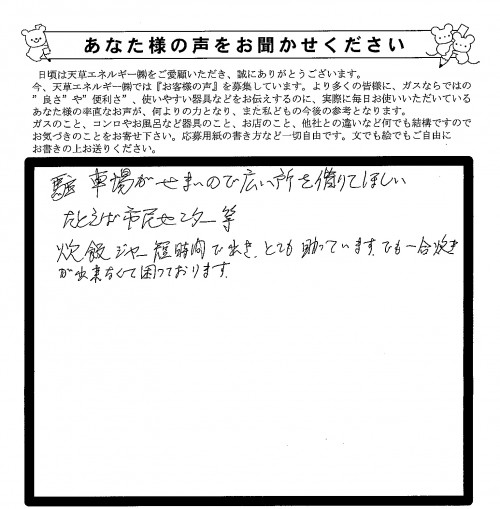 あなた様の声をお聞かせください
日頃は天草エネルギー㈱をご愛顧いただき、誠にありがとうございます。
今、天草エネルギー㈱では『お客様の声』を募集しています。より多くの皆様に、ガスならではの
”良さ”や”便利さ”、使いやすい器具などをお伝えするのに、実際に毎日お使いいただいている
あなた様の率直なお声が、何よりの力となり、また私どもの今後の参考となります。
ガスのこと、コンロやお風呂など器具のこと、お店のこと、他社との違いなど何でも結構ですので
お気づきのことをお寄せ下さい。応募用紙の書き方など一切自由です。文でも絵でもご自由に
お書きの上お送りください。
駐車場がせまいので広い所を借りてほしい
たとえば市民センター等
炊飯ジャー短時間で出き、とても助っています。でも一合炊き
が出来なくて困っております。